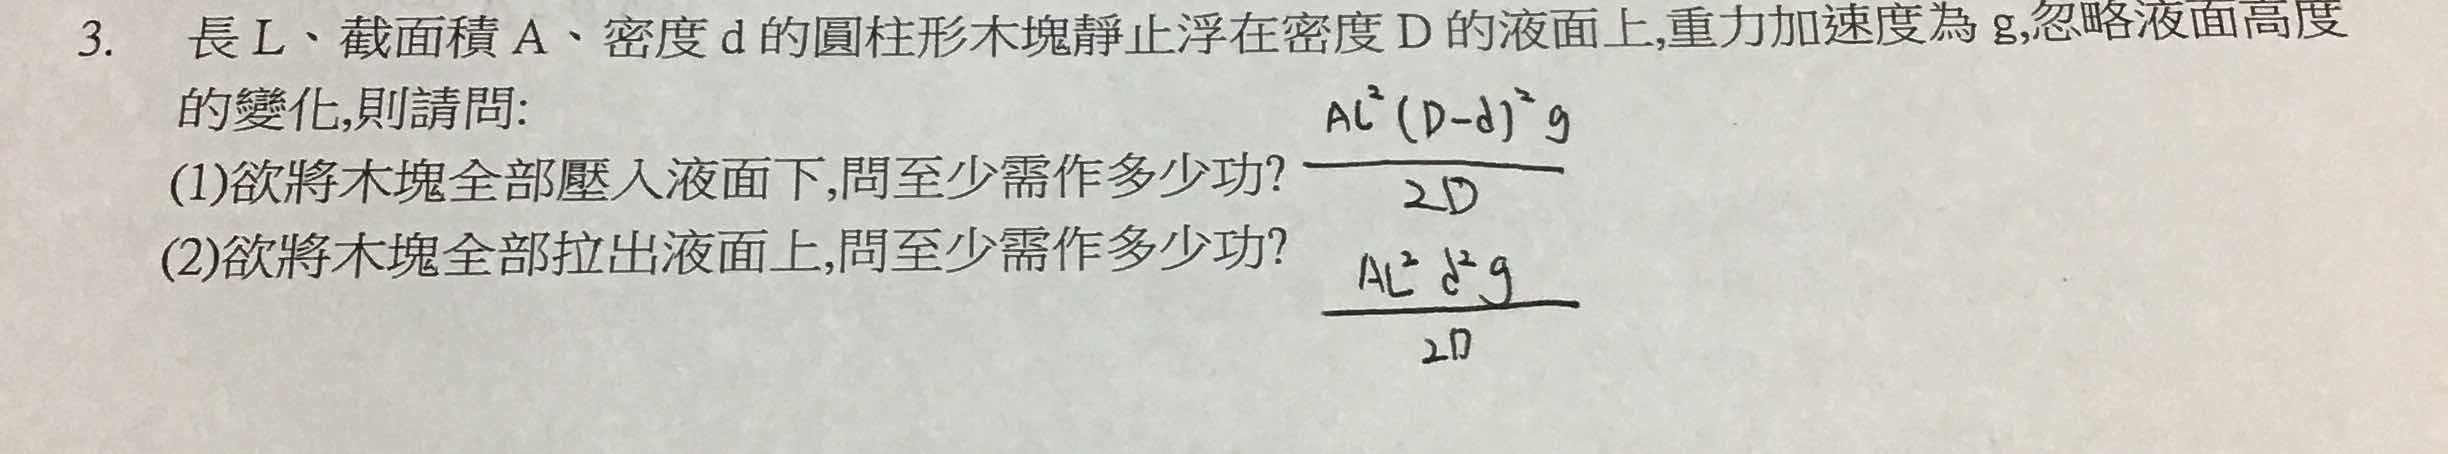 3. 長 L、截面積 A、密度 d 的圓柱形木塊靜止浮在密度 D 的液面上,重力加速度為 g,忽略液面高度
的變化,則請問:
(1)欲將木塊全部壓入液面下,問至少需作多少功? AL²(D-d)²g / 2D
(2)欲將木塊全部拉出液面上,問至少需作多少功? AL²d²g / 2D